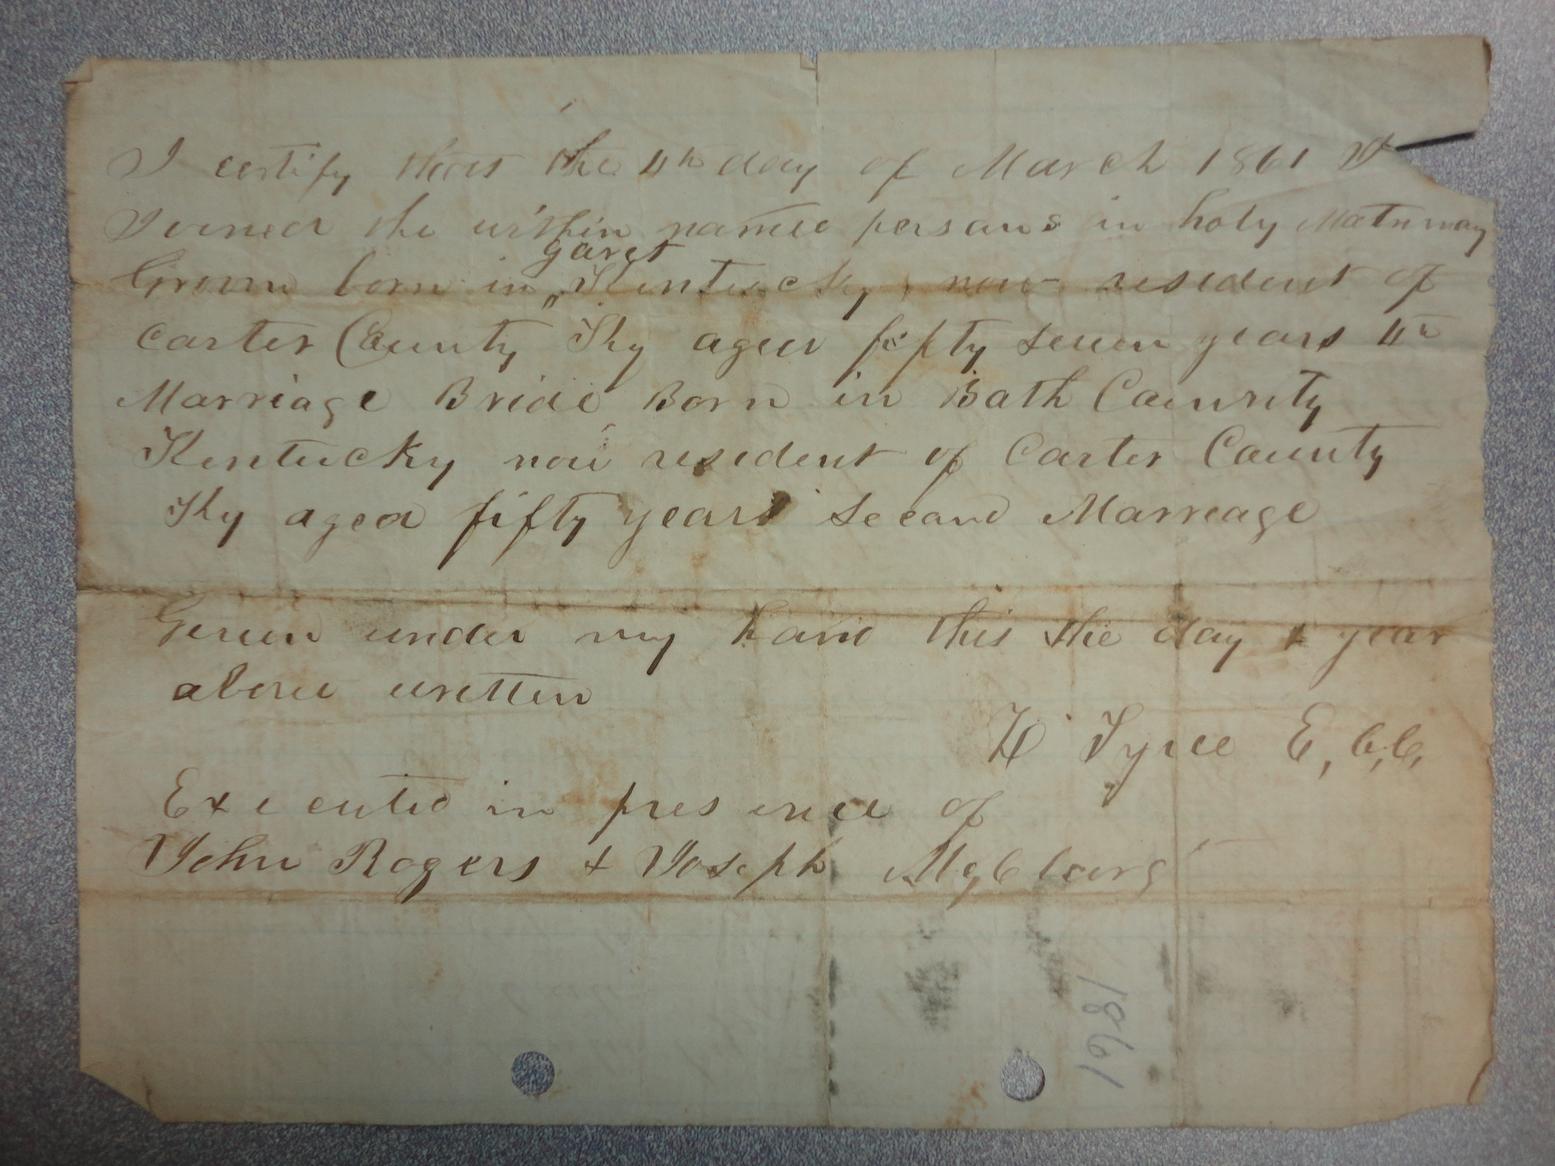 I certify that the 4th day of March 1861 I
Joined the within named persons in holy Matrimony
garet
Groom born in Kentucky, now resident of
Carter County Ky aged fifty seven years 4th
Marriage Bride Born in Bath County
Kentucky now resident of Carter County
Ky aged fifty years Second Marriage
Given under my hand this the day & year
above written
Tyree E, C, C,
Executed in presence of
John Rogers & Joseph
1861